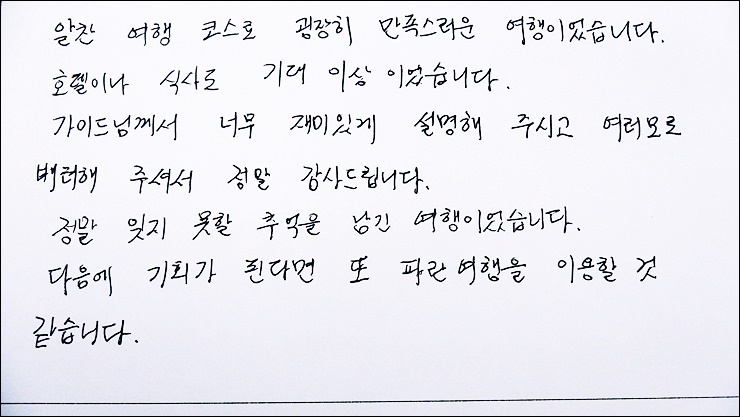 알찬 여행 코스로 굉장히 만족스러운 여행이었습니다.
호텔이나 식사도 기대 이상 이었습니다.
가이드님께서 너무 재미있게 설명해 주시고 여러모로
배려해 주셔서 정말 감사드립니다.
정말 잊지 못할 추억을 남긴 여행이었습니다.
다음에 기회가 된다면 또 파란여행을 이용할 것
같습니다.